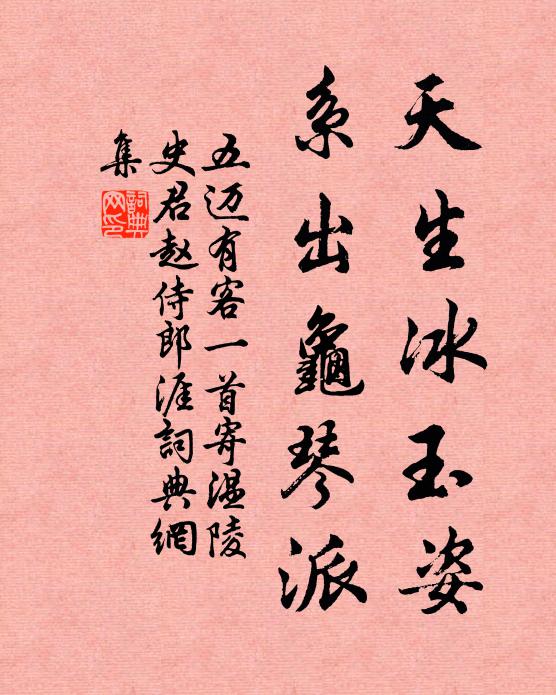 天生冰玉姿
系出龜琴派
五迈有客一首寄温陵
史君赵侍郎涯詞典網
集
詞典網印